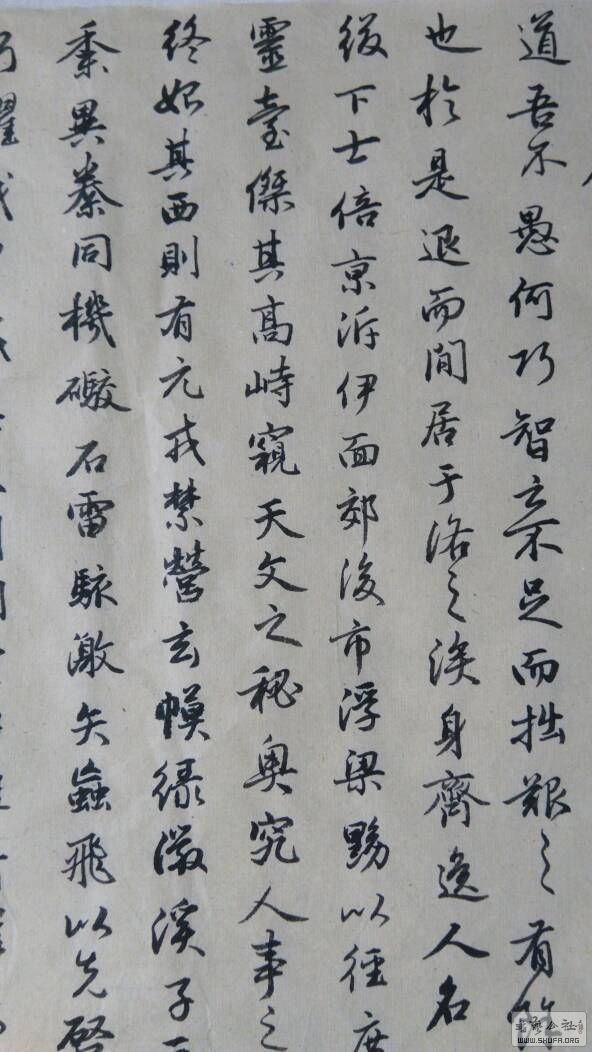 道吾不愚何巧智之不足而拙艱之有
也於是退而閒居于洛之涘身齊逸人名
綴下士倍京泝伊面郊後市浮梁黝以徑度
靈臺傑其高峙窺天文之秘奥究人事之
終始其西則有元戎禁營玄幙綠徽溪子
黍異絭同機礮石雷駭激矢蝱飛以先啓
WWW.SHUFA.ORG